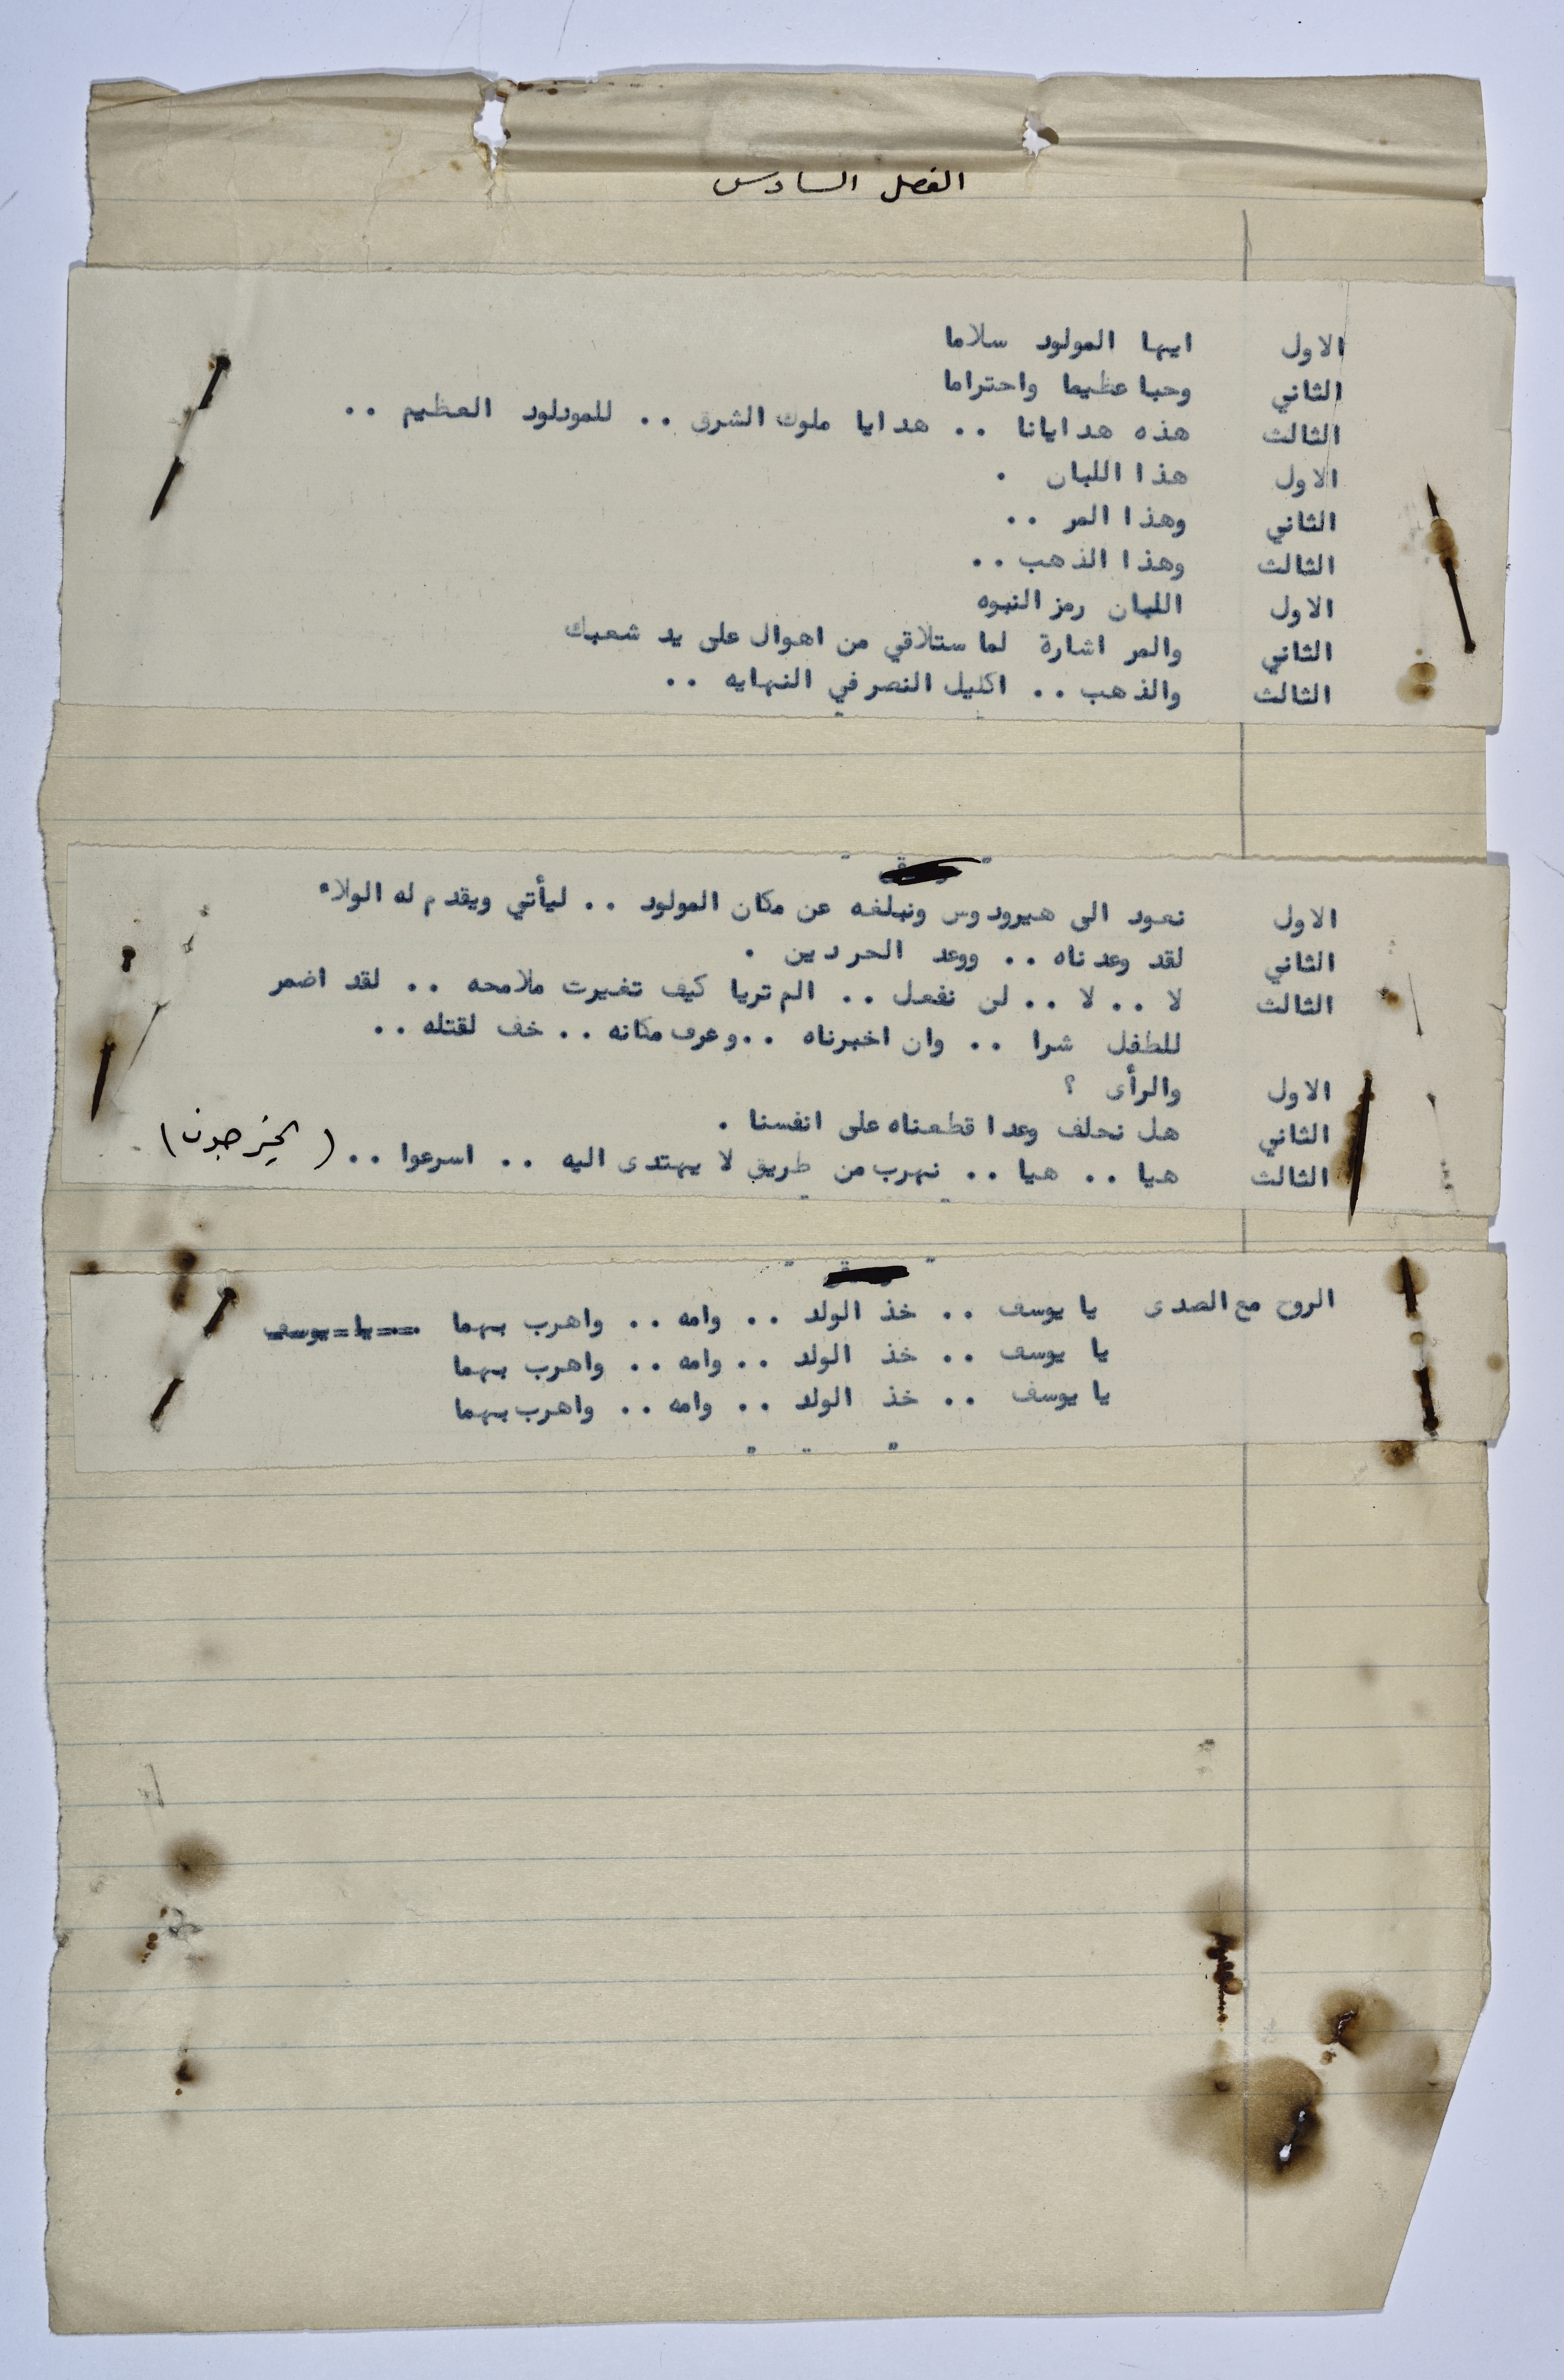 الفصل السادس
الاول ايها المولود سلاما
الثاني وحبا عظيما واحتراما
الثالث هذه هدايانا .. هدايا ملوك الشرق .. للمودلود العظيم ..
الاول هذا اللبان .
الثاني وهذا المر ..
الثالث وهذا الذهب ..
الاول اللبان رمز النبوه
الثاني والمر اشارة لما ستلاقي من اهوال على يد شعبك
الثالث والذهب .. اكليل النصر في النهايه ..
الاول نعود الى هيرودوس ونبلغه عن مكان المولود .. ليأتي ويقدم له الولاء
الثاني لقد وعدناه .. ووعد الحر دين .
الثالث لا .. لا .. لن نفعل .. الم تريا كيف تغيرت ملامحه .. لقد اضمر
للطفل شرا .. وان اخبرناه .. وعرف مكانه .. خف لقتله ..
الاول والرأى ؟
الثاني هل نحلف وعدا قطعناه على انفسنا .
الثالث هيا .. هيا .. نهرب من طريق لا يهتدى اليه .. اسرعوا .. (يخرجون)
الروح مع الصدى يا يوسف .. خذ الولد .. وامه .. واهرب بهما .. يا يوسف
يا يوسف .. خذ الولد .. وامه .. واهرب بهما
يا يوسف .. خذ الولد .. وامه .. واهرب بهما